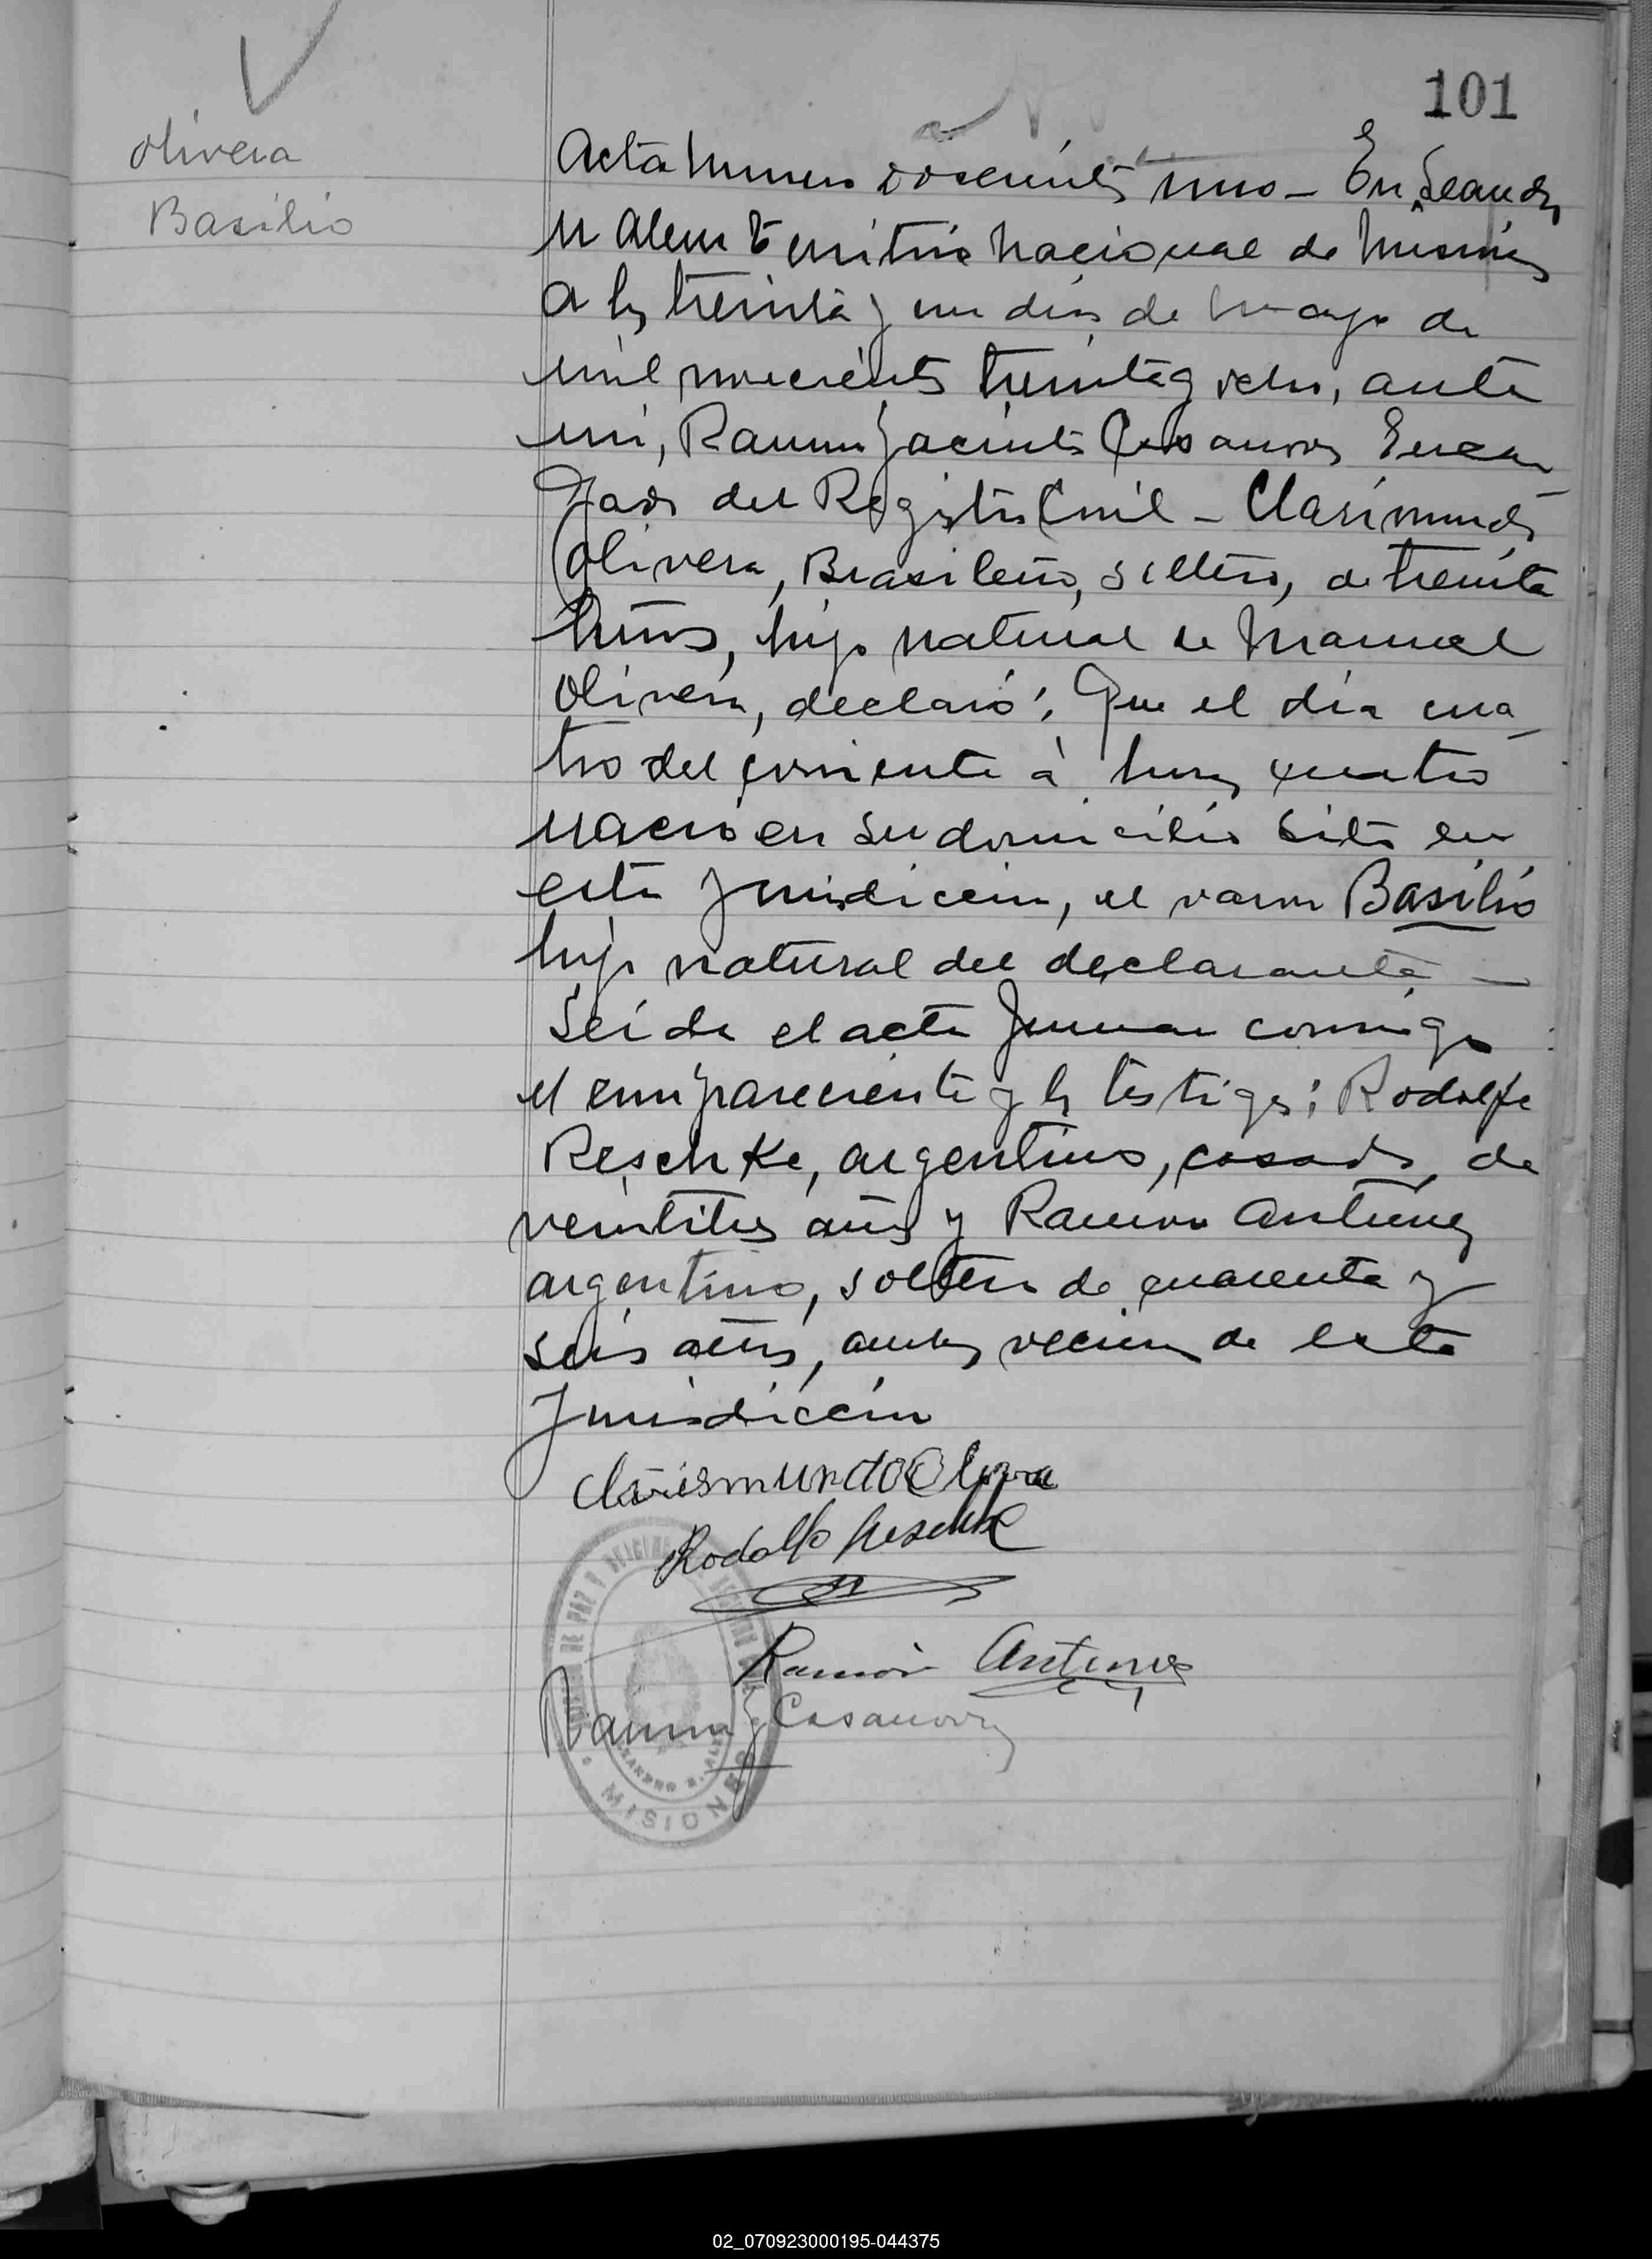 101
Olivera
Basilio
Acta Numero doscientos uno - En Leandro
N Alem Territorio Nacional de Misiones
a los treinta y un dias de Mayo de
mil novecientos treinta y ocho, ante
mi, Ramon Jacinto Casanova, Encar
gado del Registro Civil - Clarimundo
Olivera, Brasileño, soltero, de treinta
años, hijo natural de Manuel
Olivera, declaró: Que el dia cua
tro del corriente á horas cuatro
nació en su domicilio sito en
esta Jurisdiccion, el varon Basilio
hijo natural del declarante -
Leida el acta firman conmigo
el compareciente y los testigos: Rodolfo
Reschke, argentino, casado, de
veintitres años y Ramon Antunez
argentino, soltero de cuarenta y
seis años, ambos vecinos de esta
Jurisdiccion
Clarismundo Olivera
Rodolfo Reschke
Ramón Antunes
Ramon J Casanova
DE PAZ
LEANDRO N. ALEM
MISIONES
02_070923000195-044375